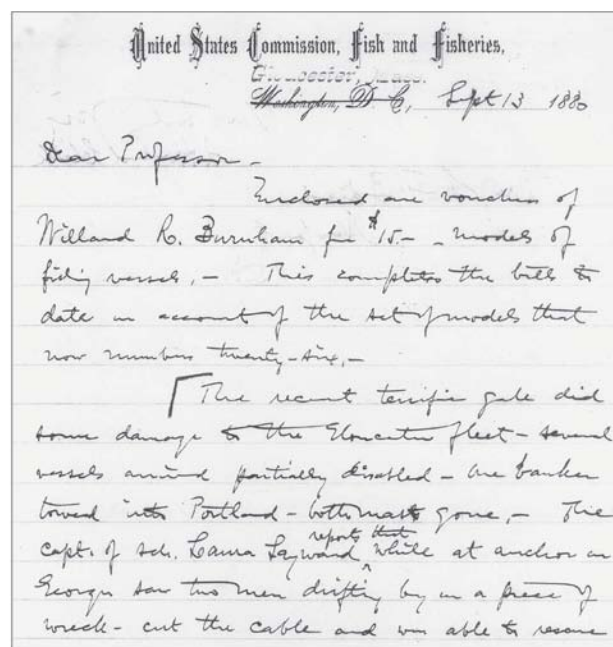 United States Commission, Fish and Fisheries,
Gloucester, Mass.
Washington, D. C., Sept 13 1880
Dear Professor -
Enclosed are vouchers of
Willard R. Burnham for $15.- - models of
fishing vessels, - This completes the bills to
date on account of the set of models that
now numbers twenty-six, -
The recent terrific gale did
some damage to the Gloucester fleet - several
vessels arrived partially disabled - One banker
towed into Portland - both masts gone, - The
reports that
capt. of sch. Laura Sayward while at anchor on
Georges saw two men drifting by on a piece of
wreck - cut the cable and was able to rescue